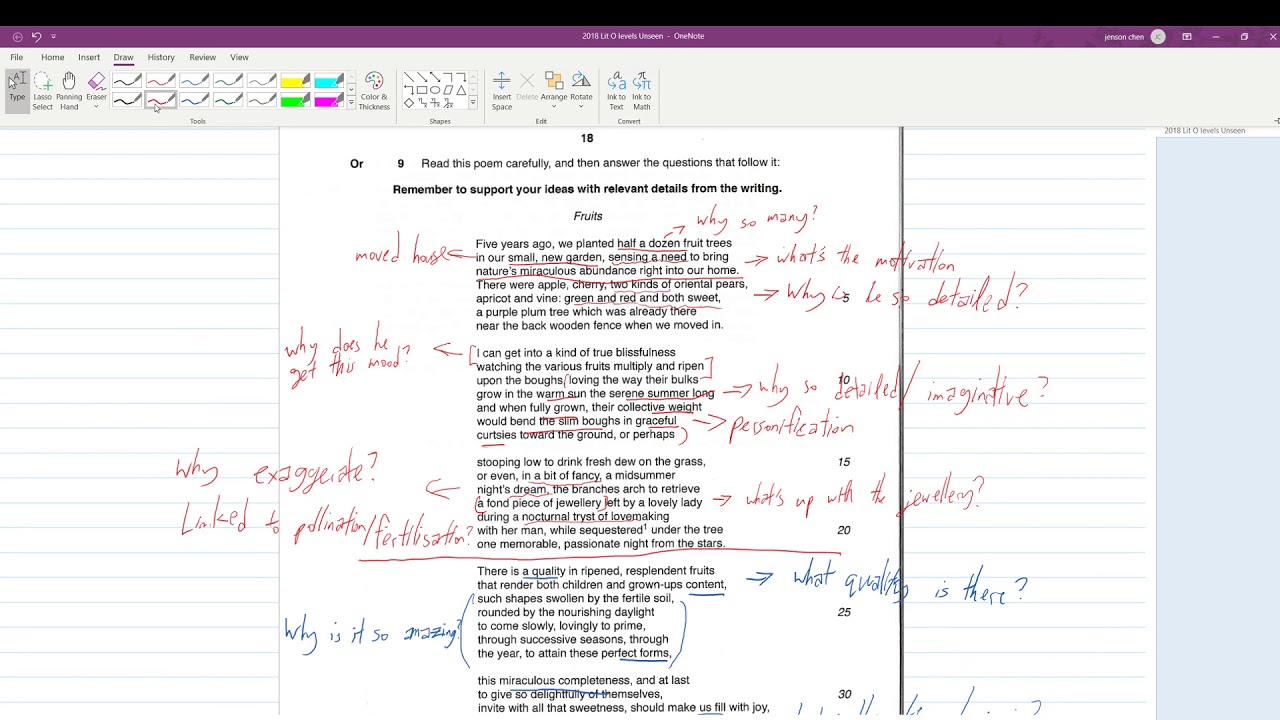 2018 Lit O levels Unseen - OneNote
jenson chen
File Home Insert Draw History Review View
Type
Lasso Select
Panning Hand
Eraser
Color & Thickness
Insert Space
Delete
Arrange
Rotate
Ink to Text
Ink to Math
Tools
Shapes
Edit
Convert
2018 Lit O levels Unseen
18
Or 9 Read this poem carefully, and then answer the questions that follow it:
Remember to support your ideas with relevant details from the writing.
Fruits
why so many?
Five years ago, we planted half a dozen fruit trees
moved house
in our small, new garden, sensing a need to bring
what's the motivation
nature's miraculous abundance right into our home.
There were apple, cherry, two kinds of oriental pears,
apricot and vine: green and red and both sweet, 5
why is he so detailed?
a purple plum tree which was already there
near the back wooden fence when we moved in.
why does he get this mood?
I can get into a kind of true blissfulness
watching the various fruits multiply and ripen
upon the boughs loving the way their bulks 10
grow in the warm sun the serene summer long
why so detailed/ imaginative?
and when fully grown, their collective weight
would bend the slim boughs in graceful
personification
curtsies toward the ground, or perhaps
why exaggerate?
stooping low to drink fresh dew on the grass, 15
or even, in a bit of fancy, a midsummer
night's dream, the branches arch to retrieve
a fond piece of jewellery left by a lovely lady
what's up with the jewellery?
during a nocturnal tryst of lovemaking
Linked to pollination/ fertilisation?
with her man, while sequestered1 under the tree 20
one memorable, passionate night from the stars.
There is a quality in ripened, resplendent fruits
that render both children and grown-ups content,
what quality is there?
such shapes swollen by the fertile soil,
rounded by the nourishing daylight 25
Why is it so amazing?
to come slowly, lovingly to prime,
through successive seasons, through
the year, to attain these perfect forms,
this miraculous completeness, and at last
to give so delightfully of themselves, 30
invite with all that sweetness, should make us fill with joy,